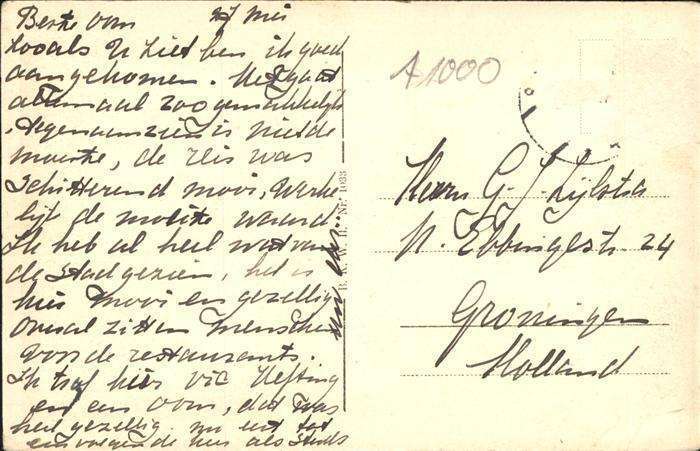 Beste oom 27 Mei
Zooals U ziet ben ik goed
aangekomen. Het gaat
allemaal zoo gemakkelijk
, tegenaanzien is niet de
moeite, de reis was
schitterend mooi, werke
lijk de moeite waard.
Ik heb al heel wat van
de stad gezien, het is
hier mooi en gezellig
Overal zitten menschen
voor de restaurants.
Ik trof hier Vic Hefting
en een oom, dat was
heel gezellig. nu tot
een volgende als steeds
A 1000
Heern G. J. Zijlstra
N. Ebbingestr. 24
Groningen
Holland